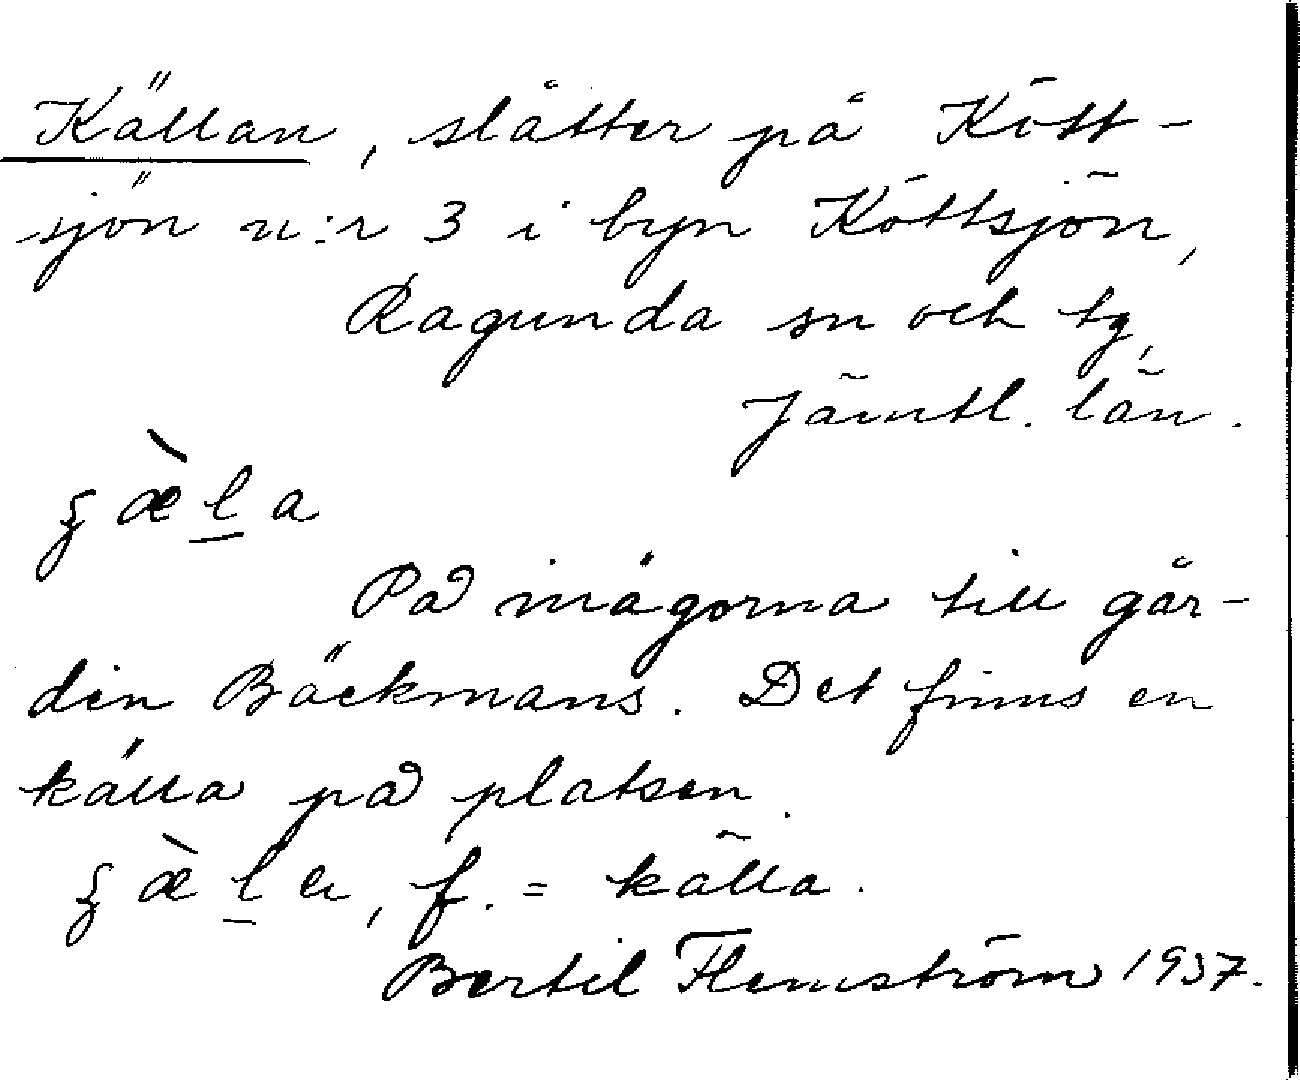 Källan, slåtter på Kött-
sjön n:r 3 i byn Köttsjön,
Ragunda sn och tg,
Jämtl. län.
ʂæ̀l̲a
På inägorna till går-
den Bäckmans. Det finns en
källa på platsen.
ʂæ̀l̲ɐ, f. = källa.
Bertil Flemström 1937.